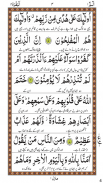 أُولَٰئِكَ عَلَىٰ هُدًى مِنْ رَبِّهِمْ وَأُولَٰئِكَ
هُمُ الْمُفْلِحُونَ إِنَّ الَّذِينَ
كَفَرُوا سَوَاءٌ عَلَيْهِمْ ءَأَنْذَرْتَهُمْ
أَمْ لَمْ تُنْذِرْهُمْ لَا يُؤْمِنُونَ خَتَمَ
اللَّهُ عَلَىٰ قُلُوبِهِمْ وَعَلَىٰ سَمْعِهِمْ
وَعَلَىٰ أَبْصَارِهِمْ غِشَاوَةٌ وَلَهُمْ عَذَابٌ
عَظِيمٌ وَمِنَ النَّاسِ مَنْ يَقُولُ
آمَنَّا بِاللَّهِ وَبِالْيَوْمِ الْآخِرِ وَمَا هُمْ